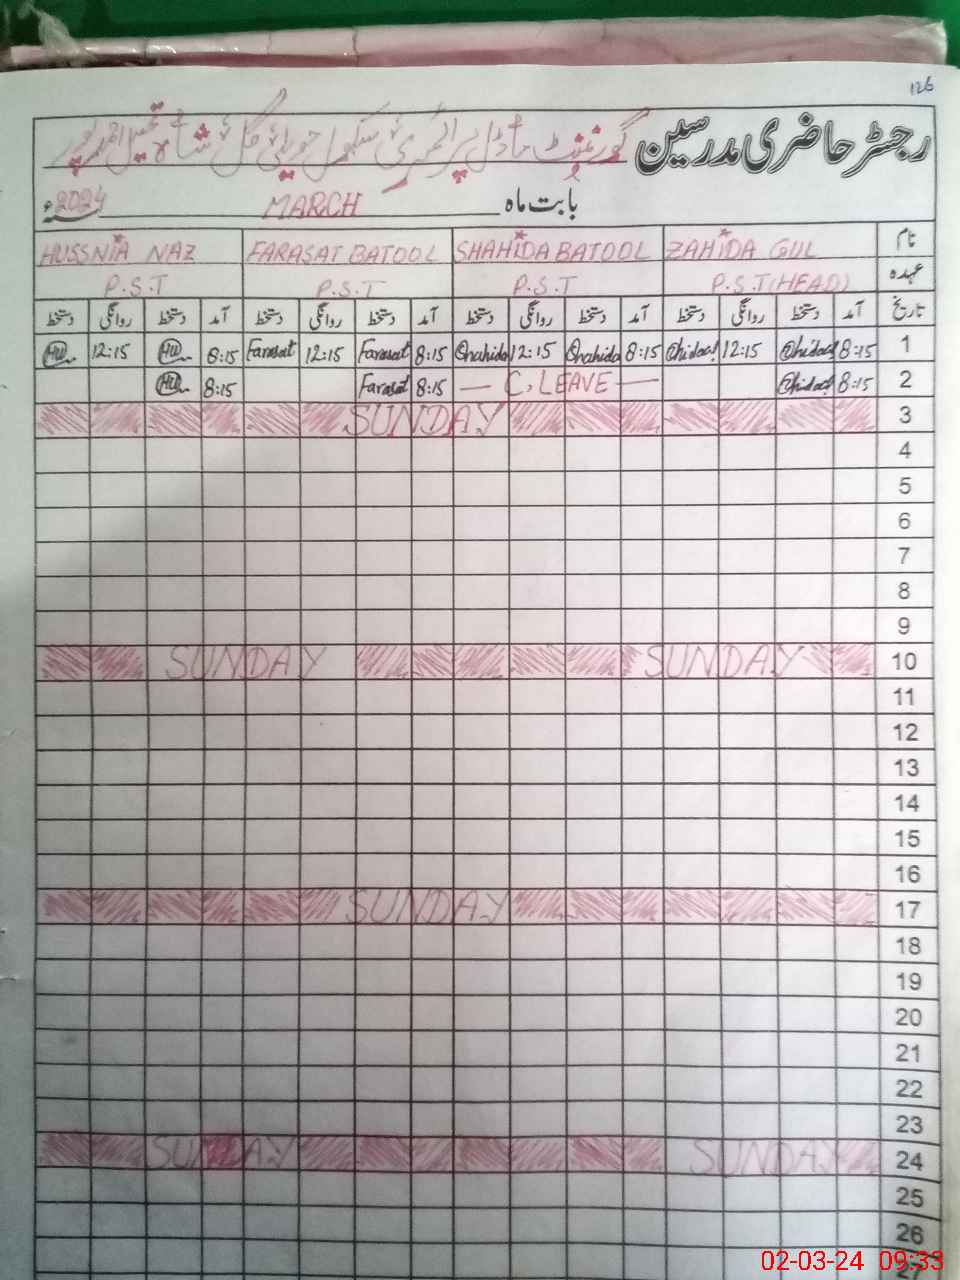 126
رجسٹر حاضری مدرسین گورنمنٹ ماڈل پرائمری سکول حویلی گل شاہ تحصیل احمد پور
بابت ماہ MARCH 2024ء
نام ZAHIDA GUL SHAHIDA BATOOL FARASAT BATOOL HUSSNIA NAZ
عہدہ P.S.T (HEAD) P.S.T P.S.T P.S.T
تاریخ آمد دستخط روانگی دستخط آمد دستخط روانگی دستخط آمد دستخط روانگی دستخط آمد دستخط روانگی دستخط
1 8:15 12:15 8:15 Shahida 12:15 Shahida 8:15 Farasat 12:15 Farasat 8:15 HN 12:15 HN
2 8:15 — C. LEAVE — 8:15 Farasat 8:15 HN
3 SUNDAY
4
5
6
7
8
9
10 SUNDAY SUNDAY
11
12
13
14
15
16
17 SUNDAY
18
19
20
21
22
23
24 SUNDAY SUNDAY
25
26
27
02-03-24 09:33